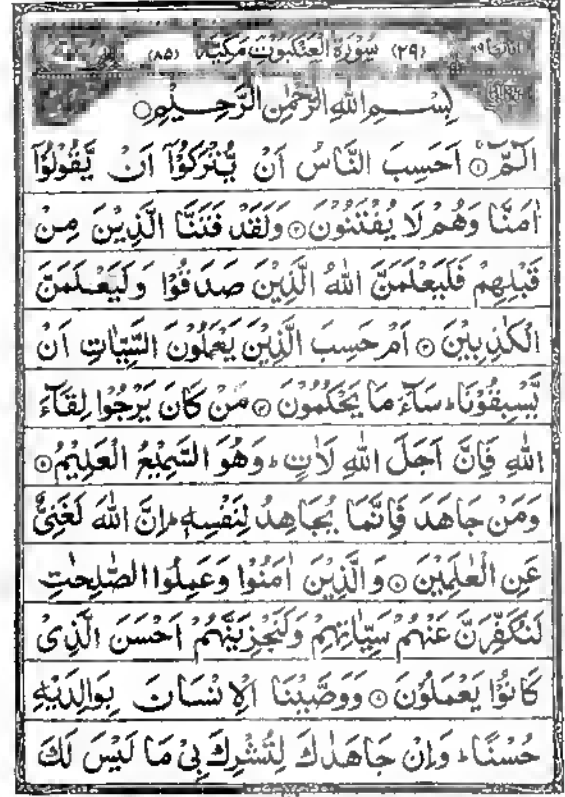 (۲۹) سُوْرَةُ الْعَنْكَبُوْتِ مَكِّيَّةٌ (۸۵)
بِسْمِ اللهِ الرَّحْمٰنِ الرَّحِيْمِ○
الٓمّٓ ۚ① اَحَسِبَ النَّاسُ اَنْ يُّتْرَكُوْٓا اَنْ يَّقُوْلُوْٓا
اٰمَنَّا وَهُمْ لَا يُفْتَنُوْنَ② وَلَقَدْ فَتَنَّا الَّذِيْنَ مِنْ
قَبْلِهِمْ فَلَيَعْلَمَنَّ اللهُ الَّذِيْنَ صَدَقُوْا وَلَيَعْلَمَنَّ
الْكٰذِبِيْنَ③ اَمْ حَسِبَ الَّذِيْنَ يَعْمَلُوْنَ السَّيِّاٰتِ اَنْ
يَّسْبِقُوْنَا ؕ سَآءَ مَا يَحْكُمُوْنَ④ مَنْ كَانَ يَرْجُوْا لِقَآءَ
اللهِ فَاِنَّ اَجَلَ اللهِ لَاٰتٍ ؕ وَهُوَ السَّمِيْعُ الْعَلِيْمُ⑤
وَمَنْ جَاهَدَ فَاِنَّمَا يُجَاهِدُ لِنَفْسِهٖ ؕ اِنَّ اللهَ لَغَنِيٌّ
عَنِ الْعٰلَمِيْنَ⑥ وَالَّذِيْنَ اٰمَنُوْا وَعَمِلُوا الصّٰلِحٰتِ
لَنُكَفِّرَنَّ عَنْهُمْ سَيِّاٰتِهِمْ وَلَنَجْزِيَنَّهُمْ اَحْسَنَ الَّذِىْ
كَانُوْا يَعْمَلُوْنَ⑦ وَوَصَّيْنَا الْاِنْسَانَ بِوَالِدَيْهِ
حُسْنًا ؕ وَاِنْ جَاهَدٰكَ لِتُشْرِكَ بِىْ مَا لَيْسَ لَكَ